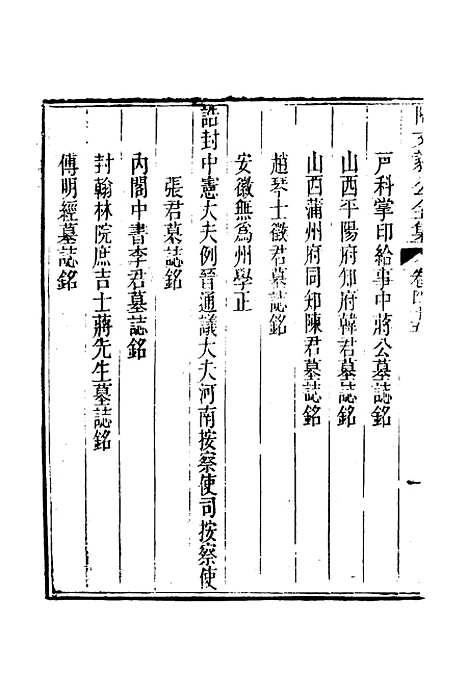 陳文恭公全集 卷
戸科掌印給事中蔣公墓誌銘
山西平陽府知府韓君墓誌銘
山西蒲州府同知陳君墓誌銘
趙琴士徵君墓誌銘
安徽無爲州學正
誥封中憲大夫例晉通議大夫河南按察使司按察使
張君墓誌銘
内閣中書李君墓誌銘
封翰林院庶吉士蔣先生墓誌銘
傅明經墓誌銘